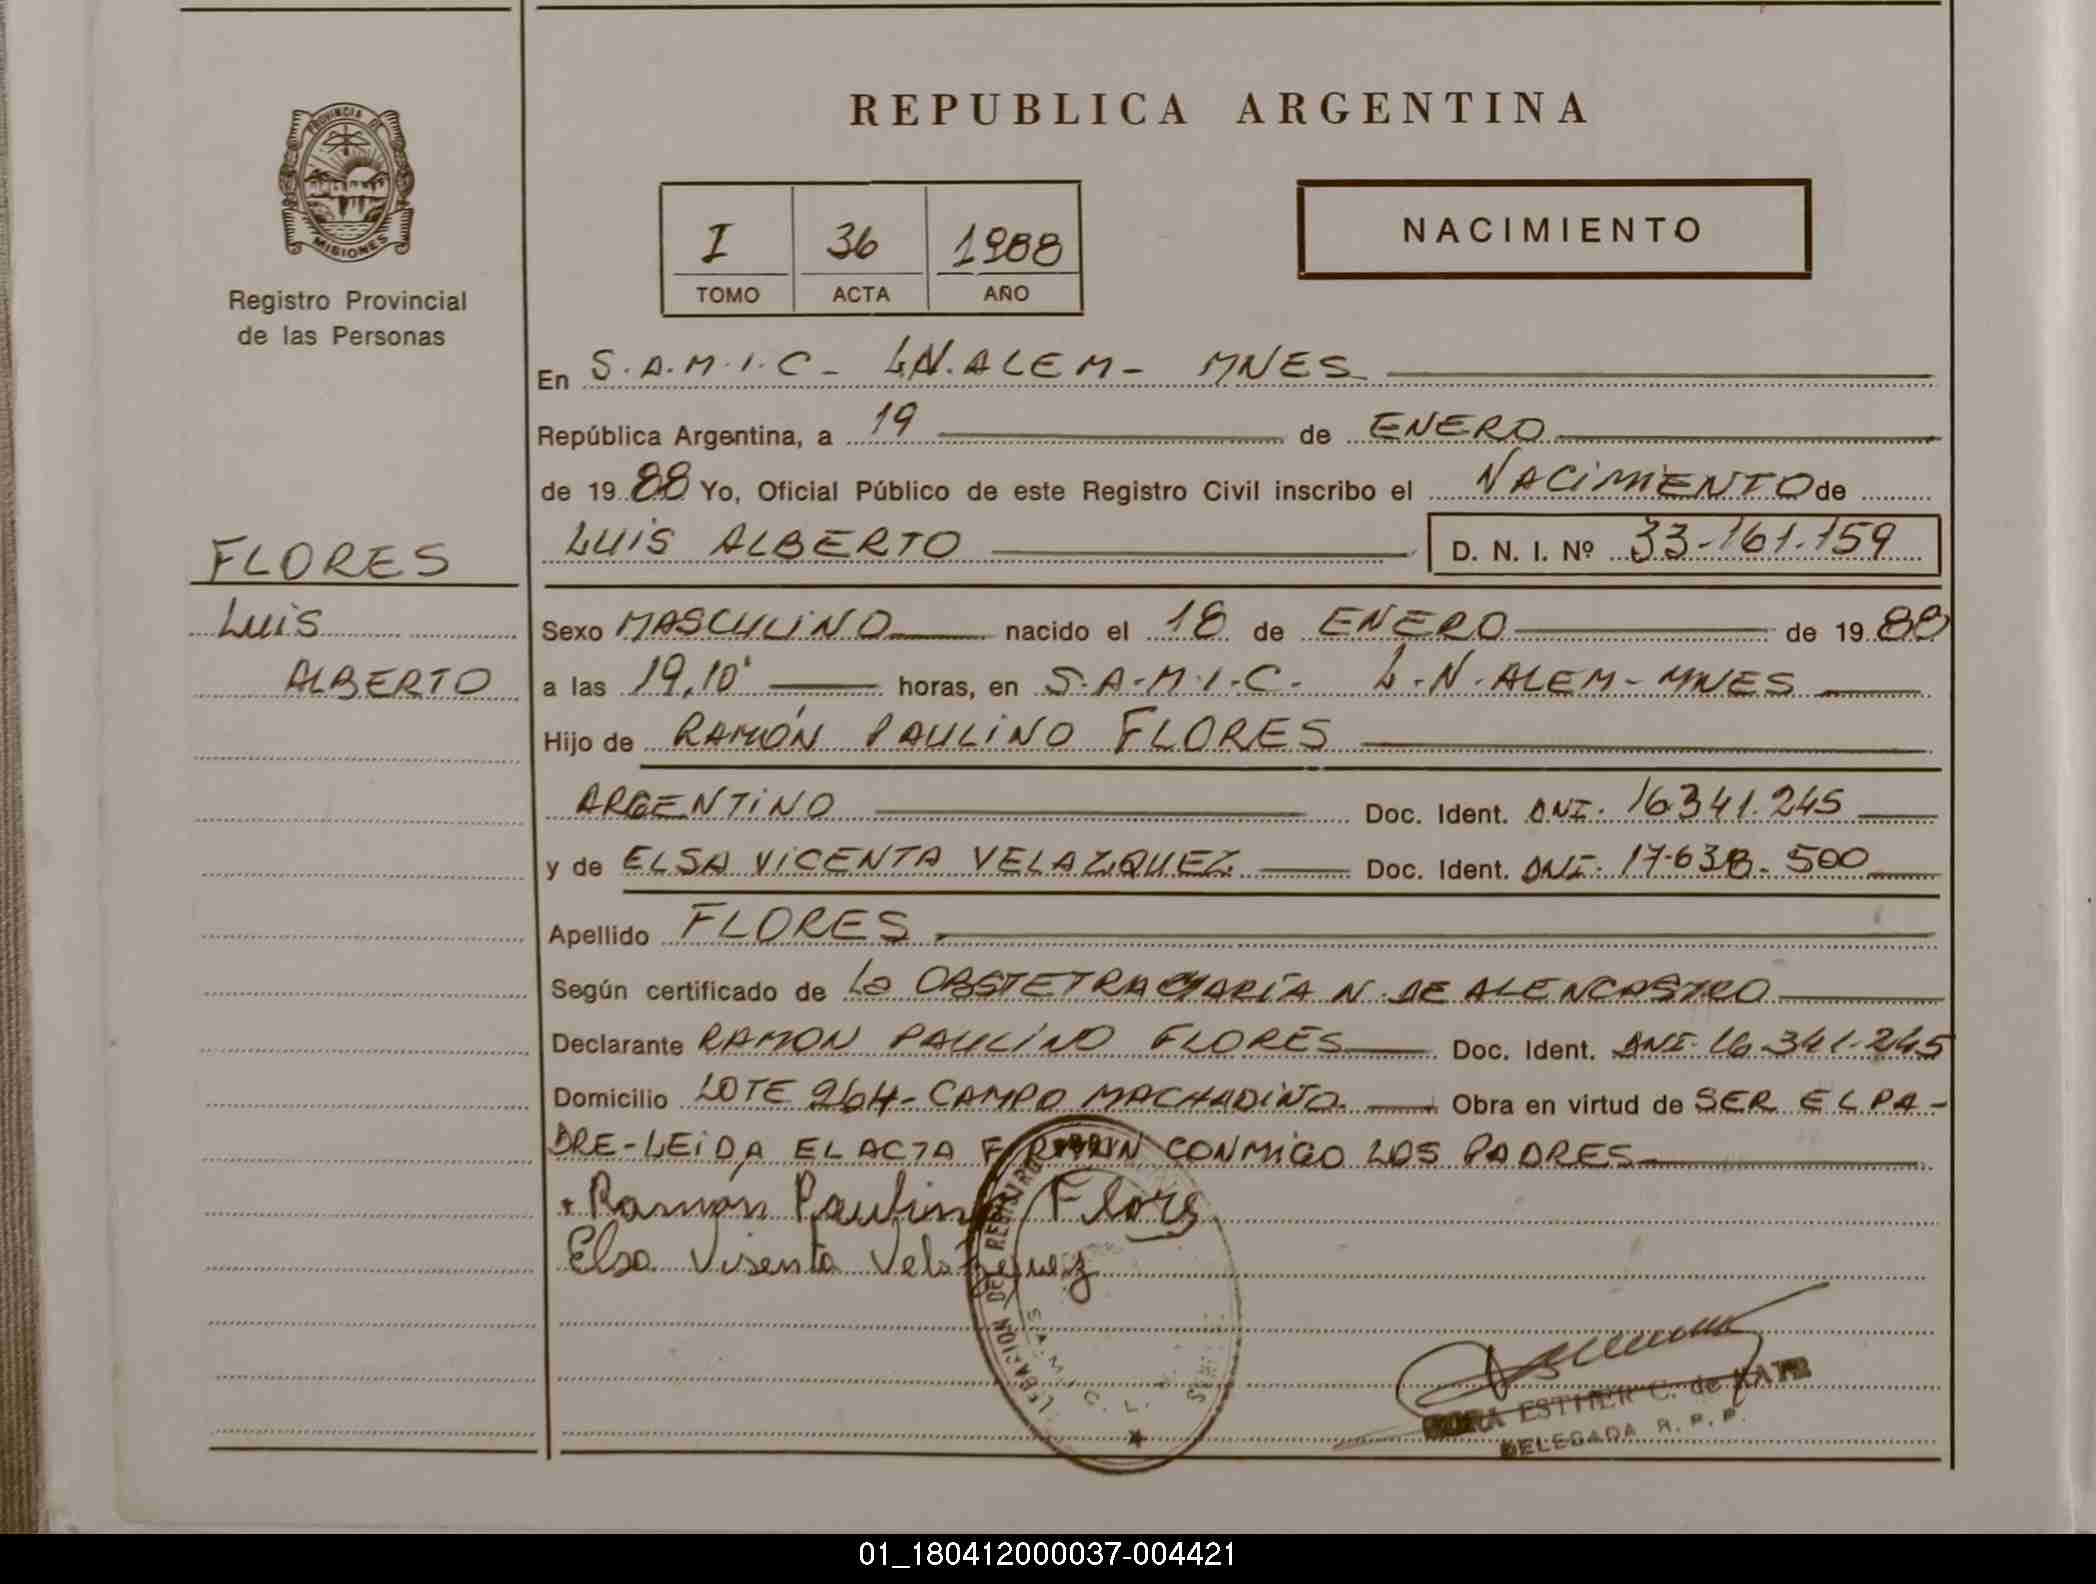 PROVINCIA DE
MISIONES
Registro Provincial
de las Personas
FLORES
Luis
ALBERTO
REPUBLICA ARGENTINA
I 36 1988
TOMO ACTA AÑO
NACIMIENTO
En S.A.M.I.C- L.N.ALEM- MNES
República Argentina, a 19 de ENERO
de 19 88 Yo, Oficial Público de este Registro Civil inscribo el NACIMIENTO de
LUIS ALBERTO D. N. I. Nº 33-161.159
Sexo MASCULINO nacido el 18 de ENERO de 19 88
a las 19,10' horas, en S.A-M.I.C- L.N.ALEM-MNES
Hijo de RAMÓN PAULINO FLORES
ARGENTINO Doc. Ident. DNI. 16341.245
y de ELSA VICENTA VELAZQUEZ Doc. Ident. DNI. 17-638-500
Apellido FLORES
Según certificado de La OBSTETRA MARÍA N. DE ALENCASTRO
Declarante RAMON PAULINO FLORES Doc. Ident. DNI-16.341.245
Domicilio LOTE 264-CAMPO MACHADIÑO. Obra en virtud de SER EL PA-
DRE-LEIDA EL ACTA FIRMAN CONMIGO LOS PADRES
Ramón Paulino Flores
Elsa Visenta Velazquez
DE REGISTRO
S.A.M.I.C. L.
ESTHER C. de
DELEGADA R. P. P.
01_180412000037-004421